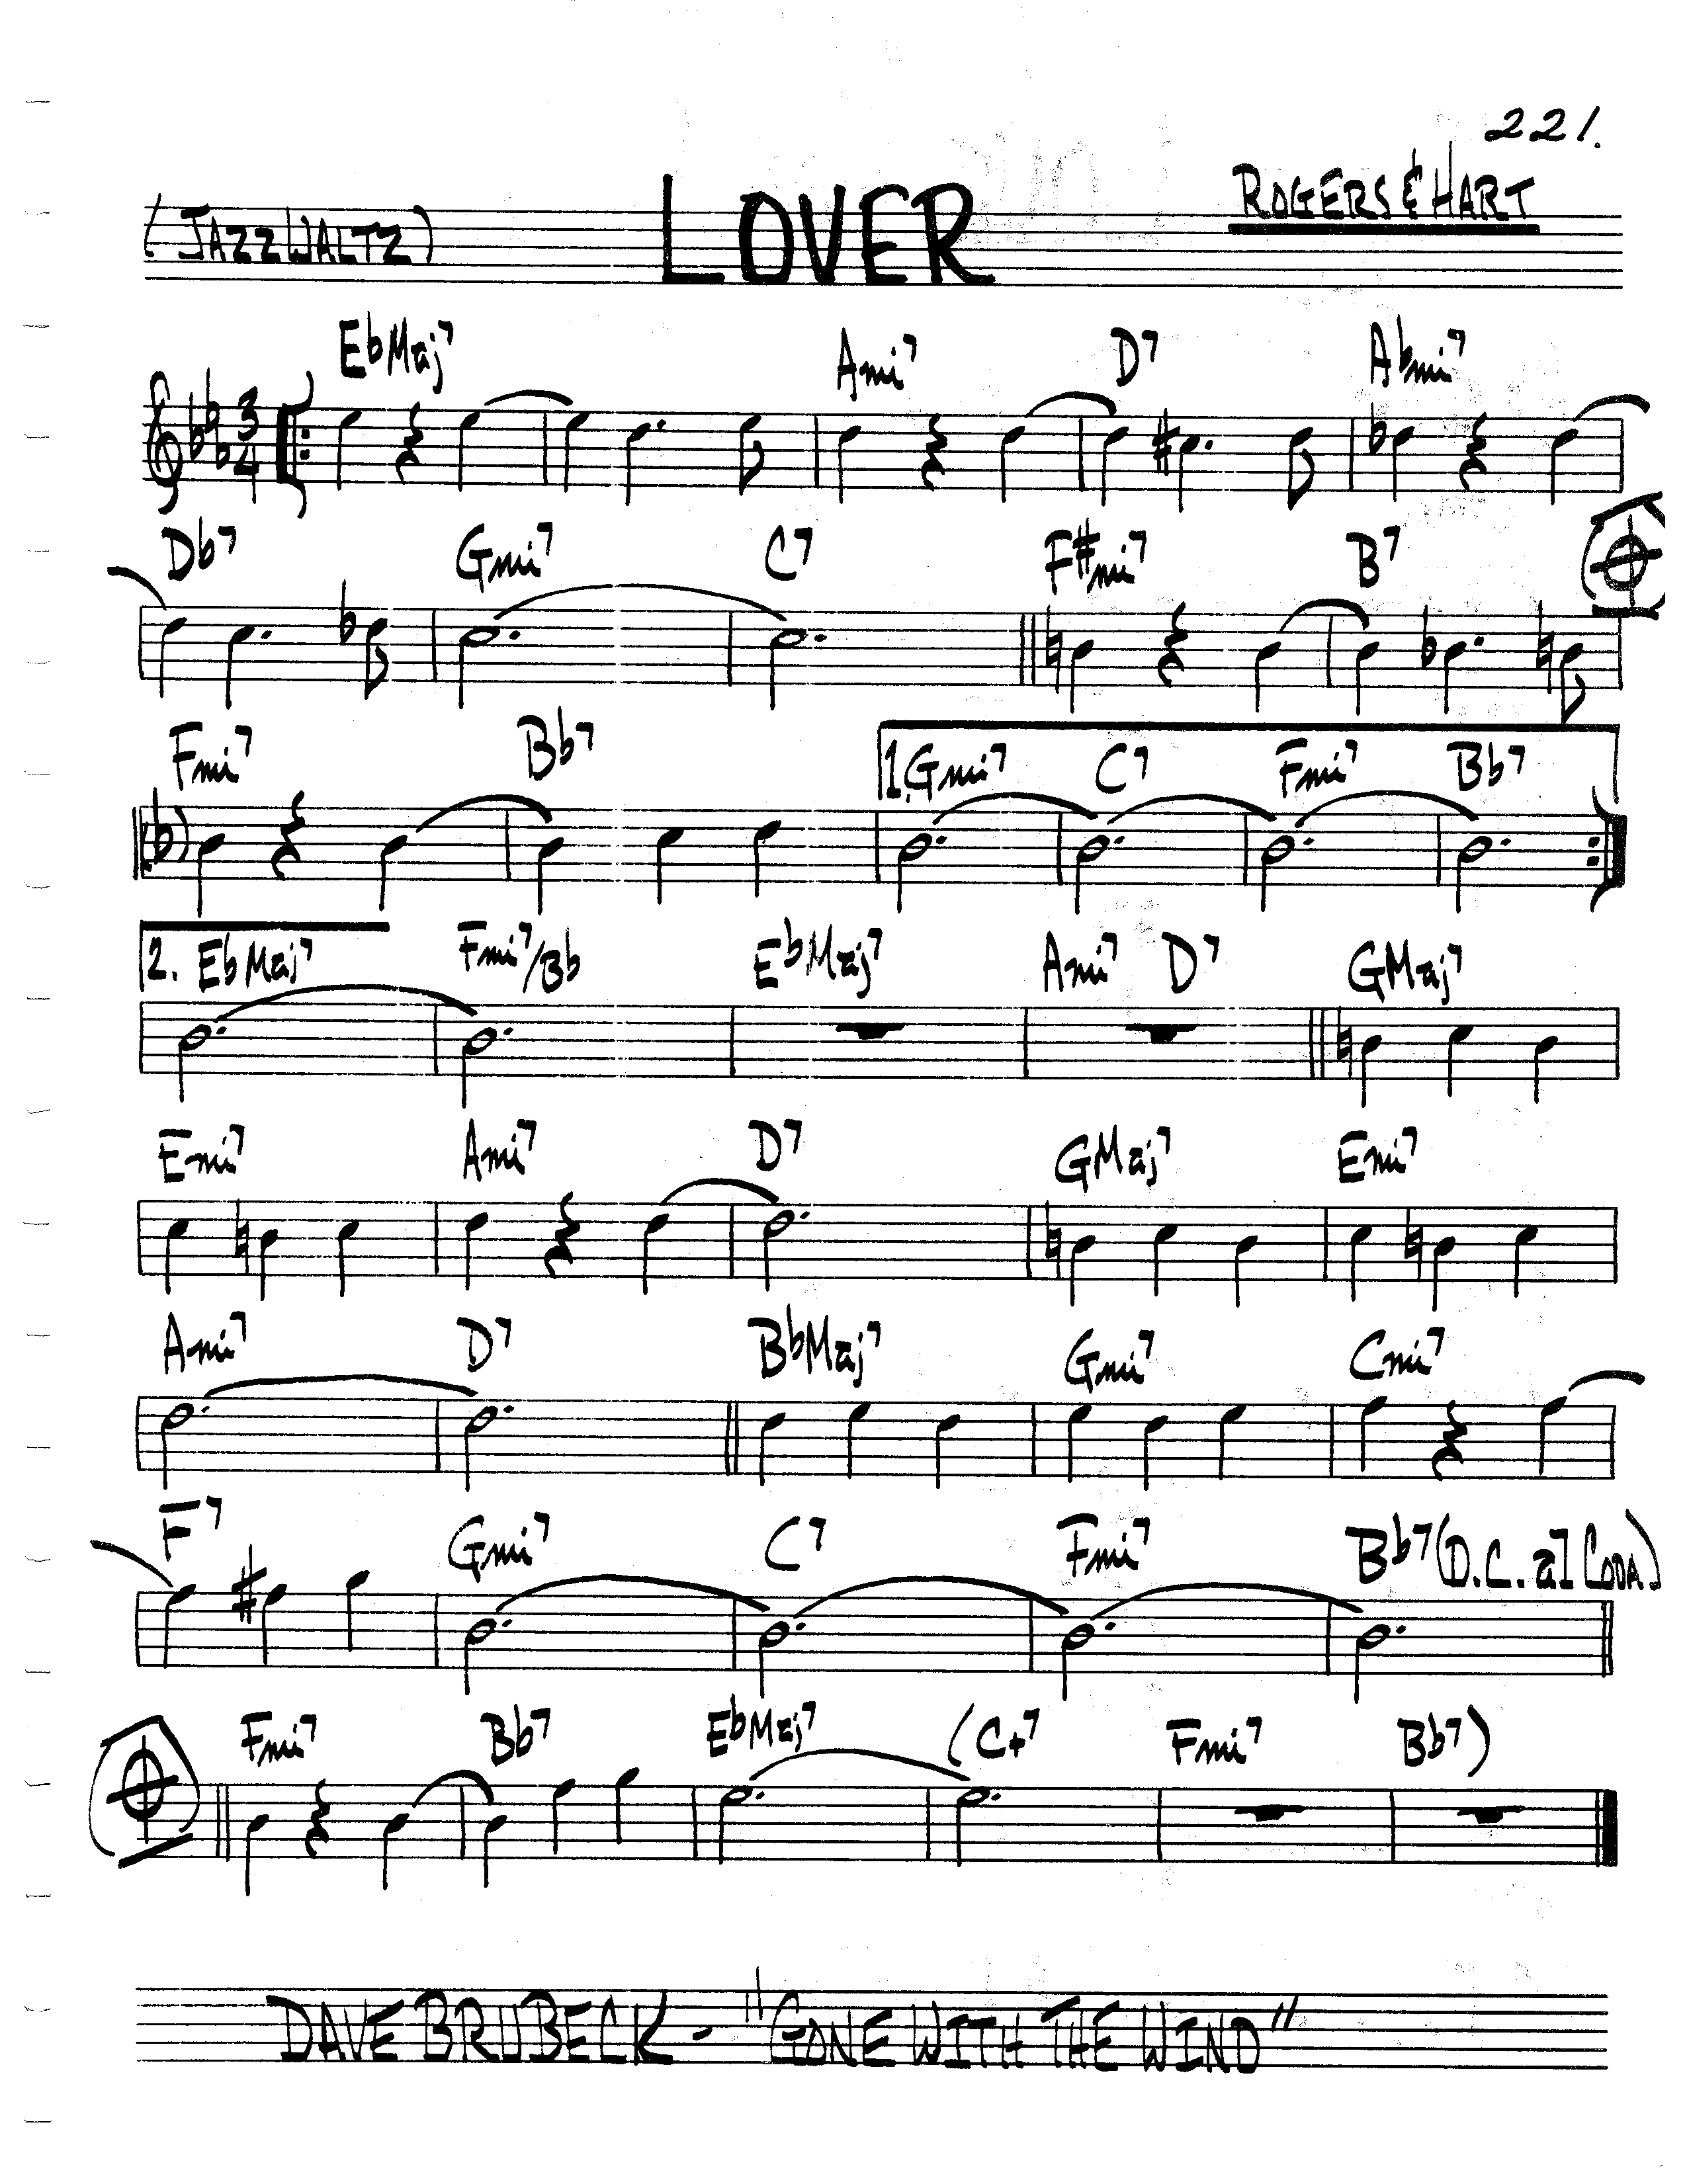 221.
LOVER
ROGERS & HART
(JAZZ WALTZ)
EbMaj7 Ami7 D7 Abmi7
3/4
Db7 Gmi7 C7 F#mi7 B7
Fmi7 Bb7 1. Gmi7 C7 Fmi7 Bb7
2. EbMaj7 Fmi7/Bb EbMaj7 Ami7 D7 GMaj7
Emi7 Ami7 D7 GMaj7 Emi7
Ami7 D7 BbMaj7 Gmi7 Cmi7
F7 Gmi7 C7 Fmi7 Bb7 (D.C. al CODA)
Fmi7 Bb7 EbMaj7 (C+7 Fmi7 Bb7)
DAVE BRUBECK - "GONE WITH THE WIND"